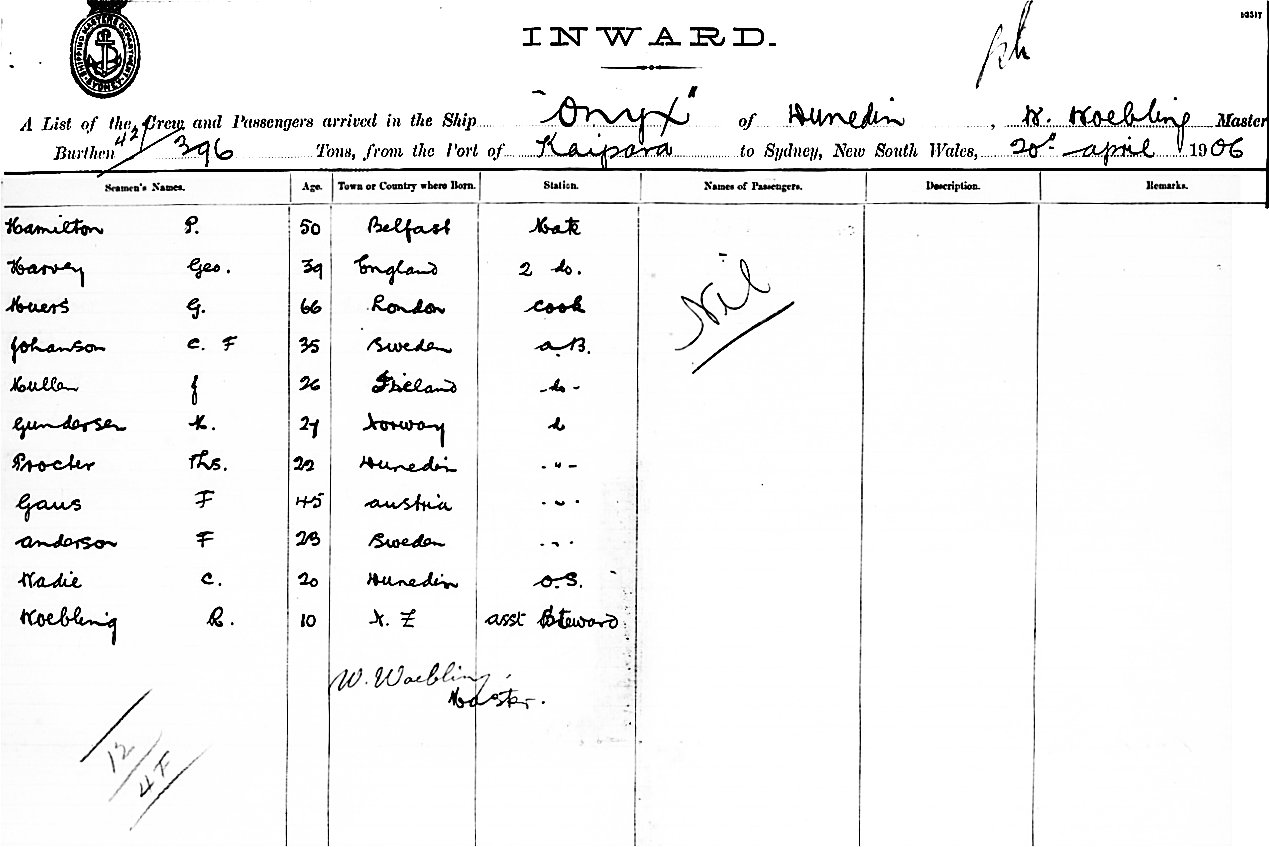 SHIPPING MASTERS DEPARTMENT SYDNEY
INWARD.
A List of the Crew and Passengers arrived in the Ship "Onyx" of Dunedin, W. Woebling Master
Burthen 396 Tons, from the Port of Kaipara to Sydney, New South Wales, 20d april 1906
Seamen's Names. Age. Town or Country where Born. Station. Names of Passengers. Description. Remarks.
Hamilton P. 50 Belfast Mate
Harvey Geo. 39 England 2 do. Nil
G. 66 London Cook
Johanson C. F 35 Sweden a.B.
J 26 -do-
Gundersen 27 Norway do
Procter Ths. 22 Dunedin - " -
Gaus F 45 austria - " -
anderson F 23 Sweden - " -
Wadie C. 20 Dunedin O.S.
Woebling R. 10 N. Z asst Steward
W. Woebling.
Master.
12
4F